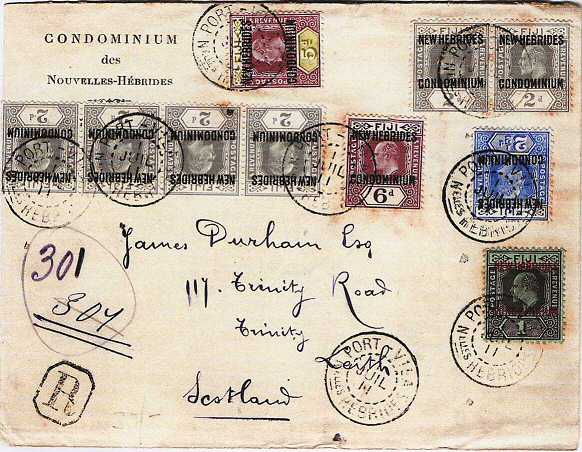 CONDOMINIUM
des
NOUVELLES-HÉBRIDES
PORT VILA
NEW HEBRIDES
CONDOMINIUM
5d
FIJI
NEW HEBRIDES
CONDOMINIUM
2d
NEW HEBRIDES
CONDOMINIUM
2d
NEW HEBRIDES
CONDOMINIUM
2d
NEW HEBRIDES
CONDOMINIUM
2d
NEW HEBRIDES
CONDOMINIUM
2d
NEW HEBRIDES
CONDOMINIUM
2d
FIJI
POSTAGE
NEW HEBRIDES
CONDOMINIUM
6d
NEW HEBRIDES
CONDOMINIUM
FIJI
POSTAGE
REVENUE
1
301
304
James Durham Esq
117. Trinity Road
Trinity
Leith
Scotland
PORT VILA
JUIL
11
HEBRIDES
R